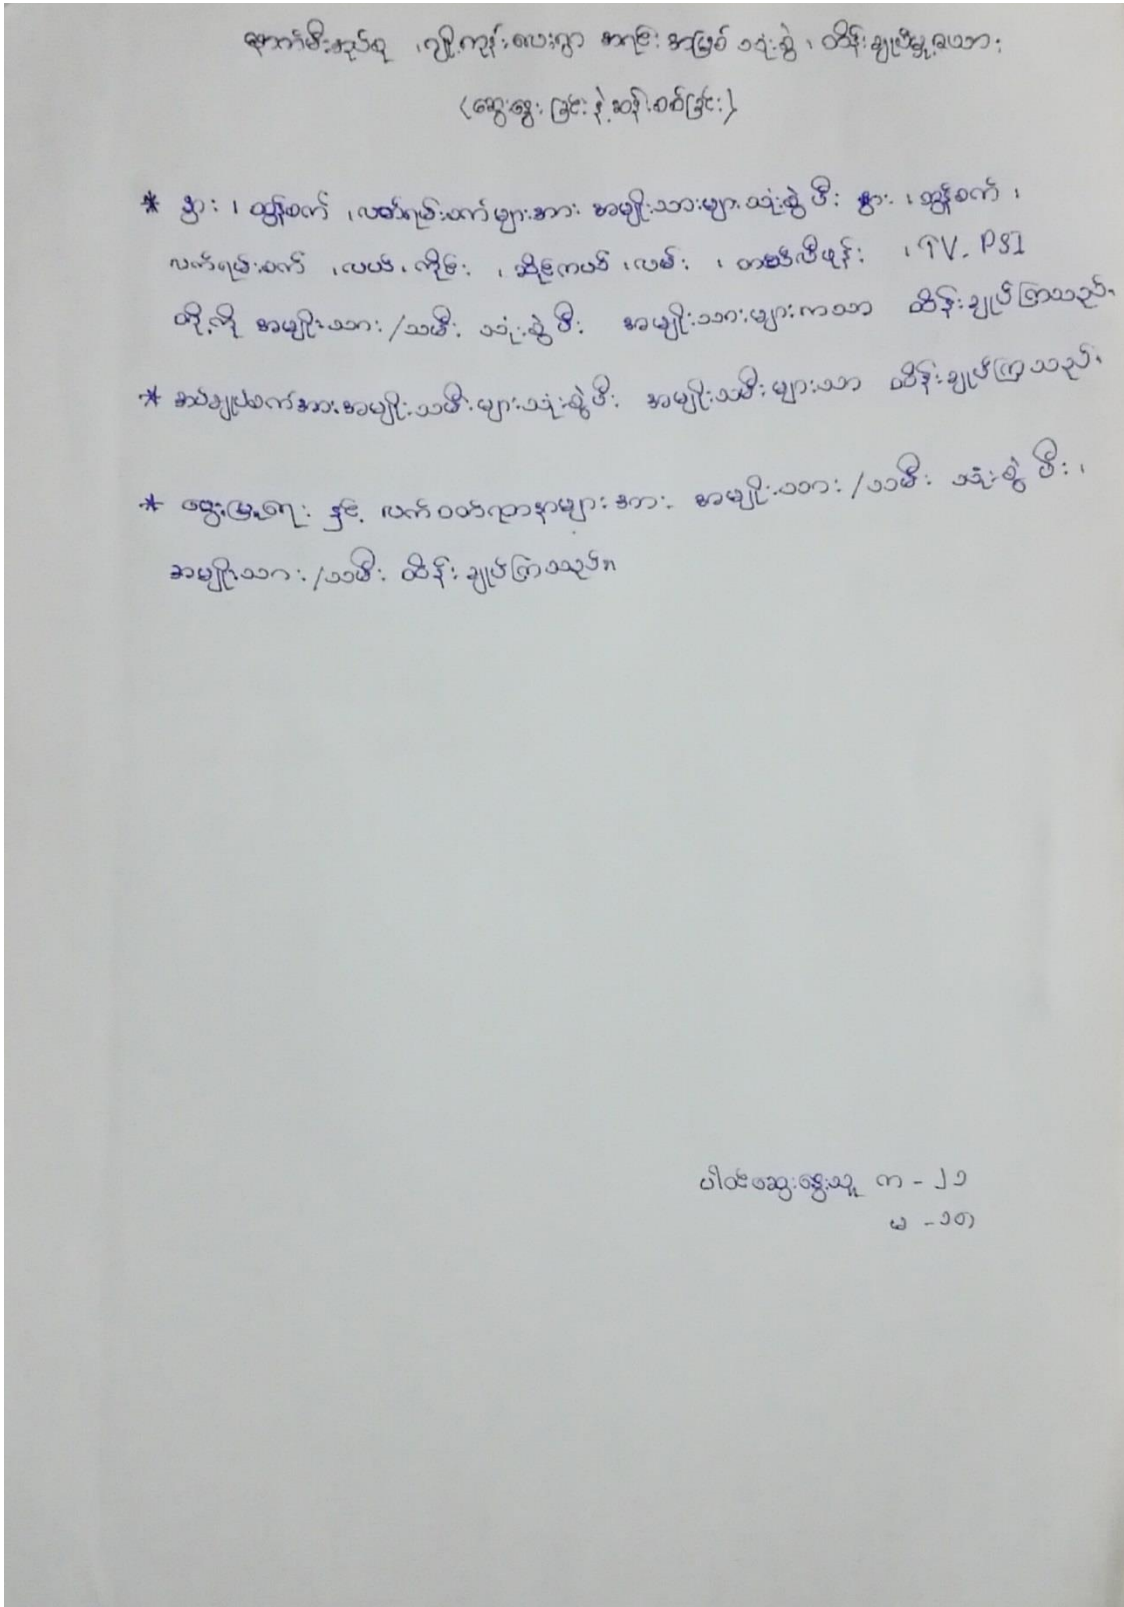 နောက်မီးအုပ်စု ၊ ဂျို့ကုန်းလေးရွာ အရင်းအမြစ် သုံးစွဲ ၊ ထိန်းချုပ်မှုဇယား
(ဆွေးနွေးခြင်းနဲ့ဆန်းစစ်ခြင်း)
* နွား ၊ ထွန်စက် ၊ လက်ရမ်းစက်များအား အမျိုးသားများသုံးစွဲပြီး နွား ၊ ထွန်စက် ၊
လက်ရမ်းစက် ၊ လယ် ၊ ကိုင်း ၊ ဆိုင်ကယ် ၊ လမ်း ၊ တယ်လီဖုန်း ၊ TV - PSI
တို့ကို အမျိုးသား/သမီး သုံးစွဲပြီး အမျိုးသားများကသာ ထိန်းချုပ်ကြသည်။
* အပ်ချုပ်စက်အားအမျိုးသမီးများသုံးစွဲပြီး အမျိုးသမီးများသာ ထိန်းချုပ်ကြသည်။
* မွေးမြူရေး နှင့် လက်ဝတ်ရတနာများအား အမျိုးသား/သမီး သုံးစွဲပြီး ၊
အမျိုးသား/သမီး ထိန်းချုပ်ကြသည်။
ပါဝင်ဆွေးနွေးသူ က - ၂၁
မ - ၁၈